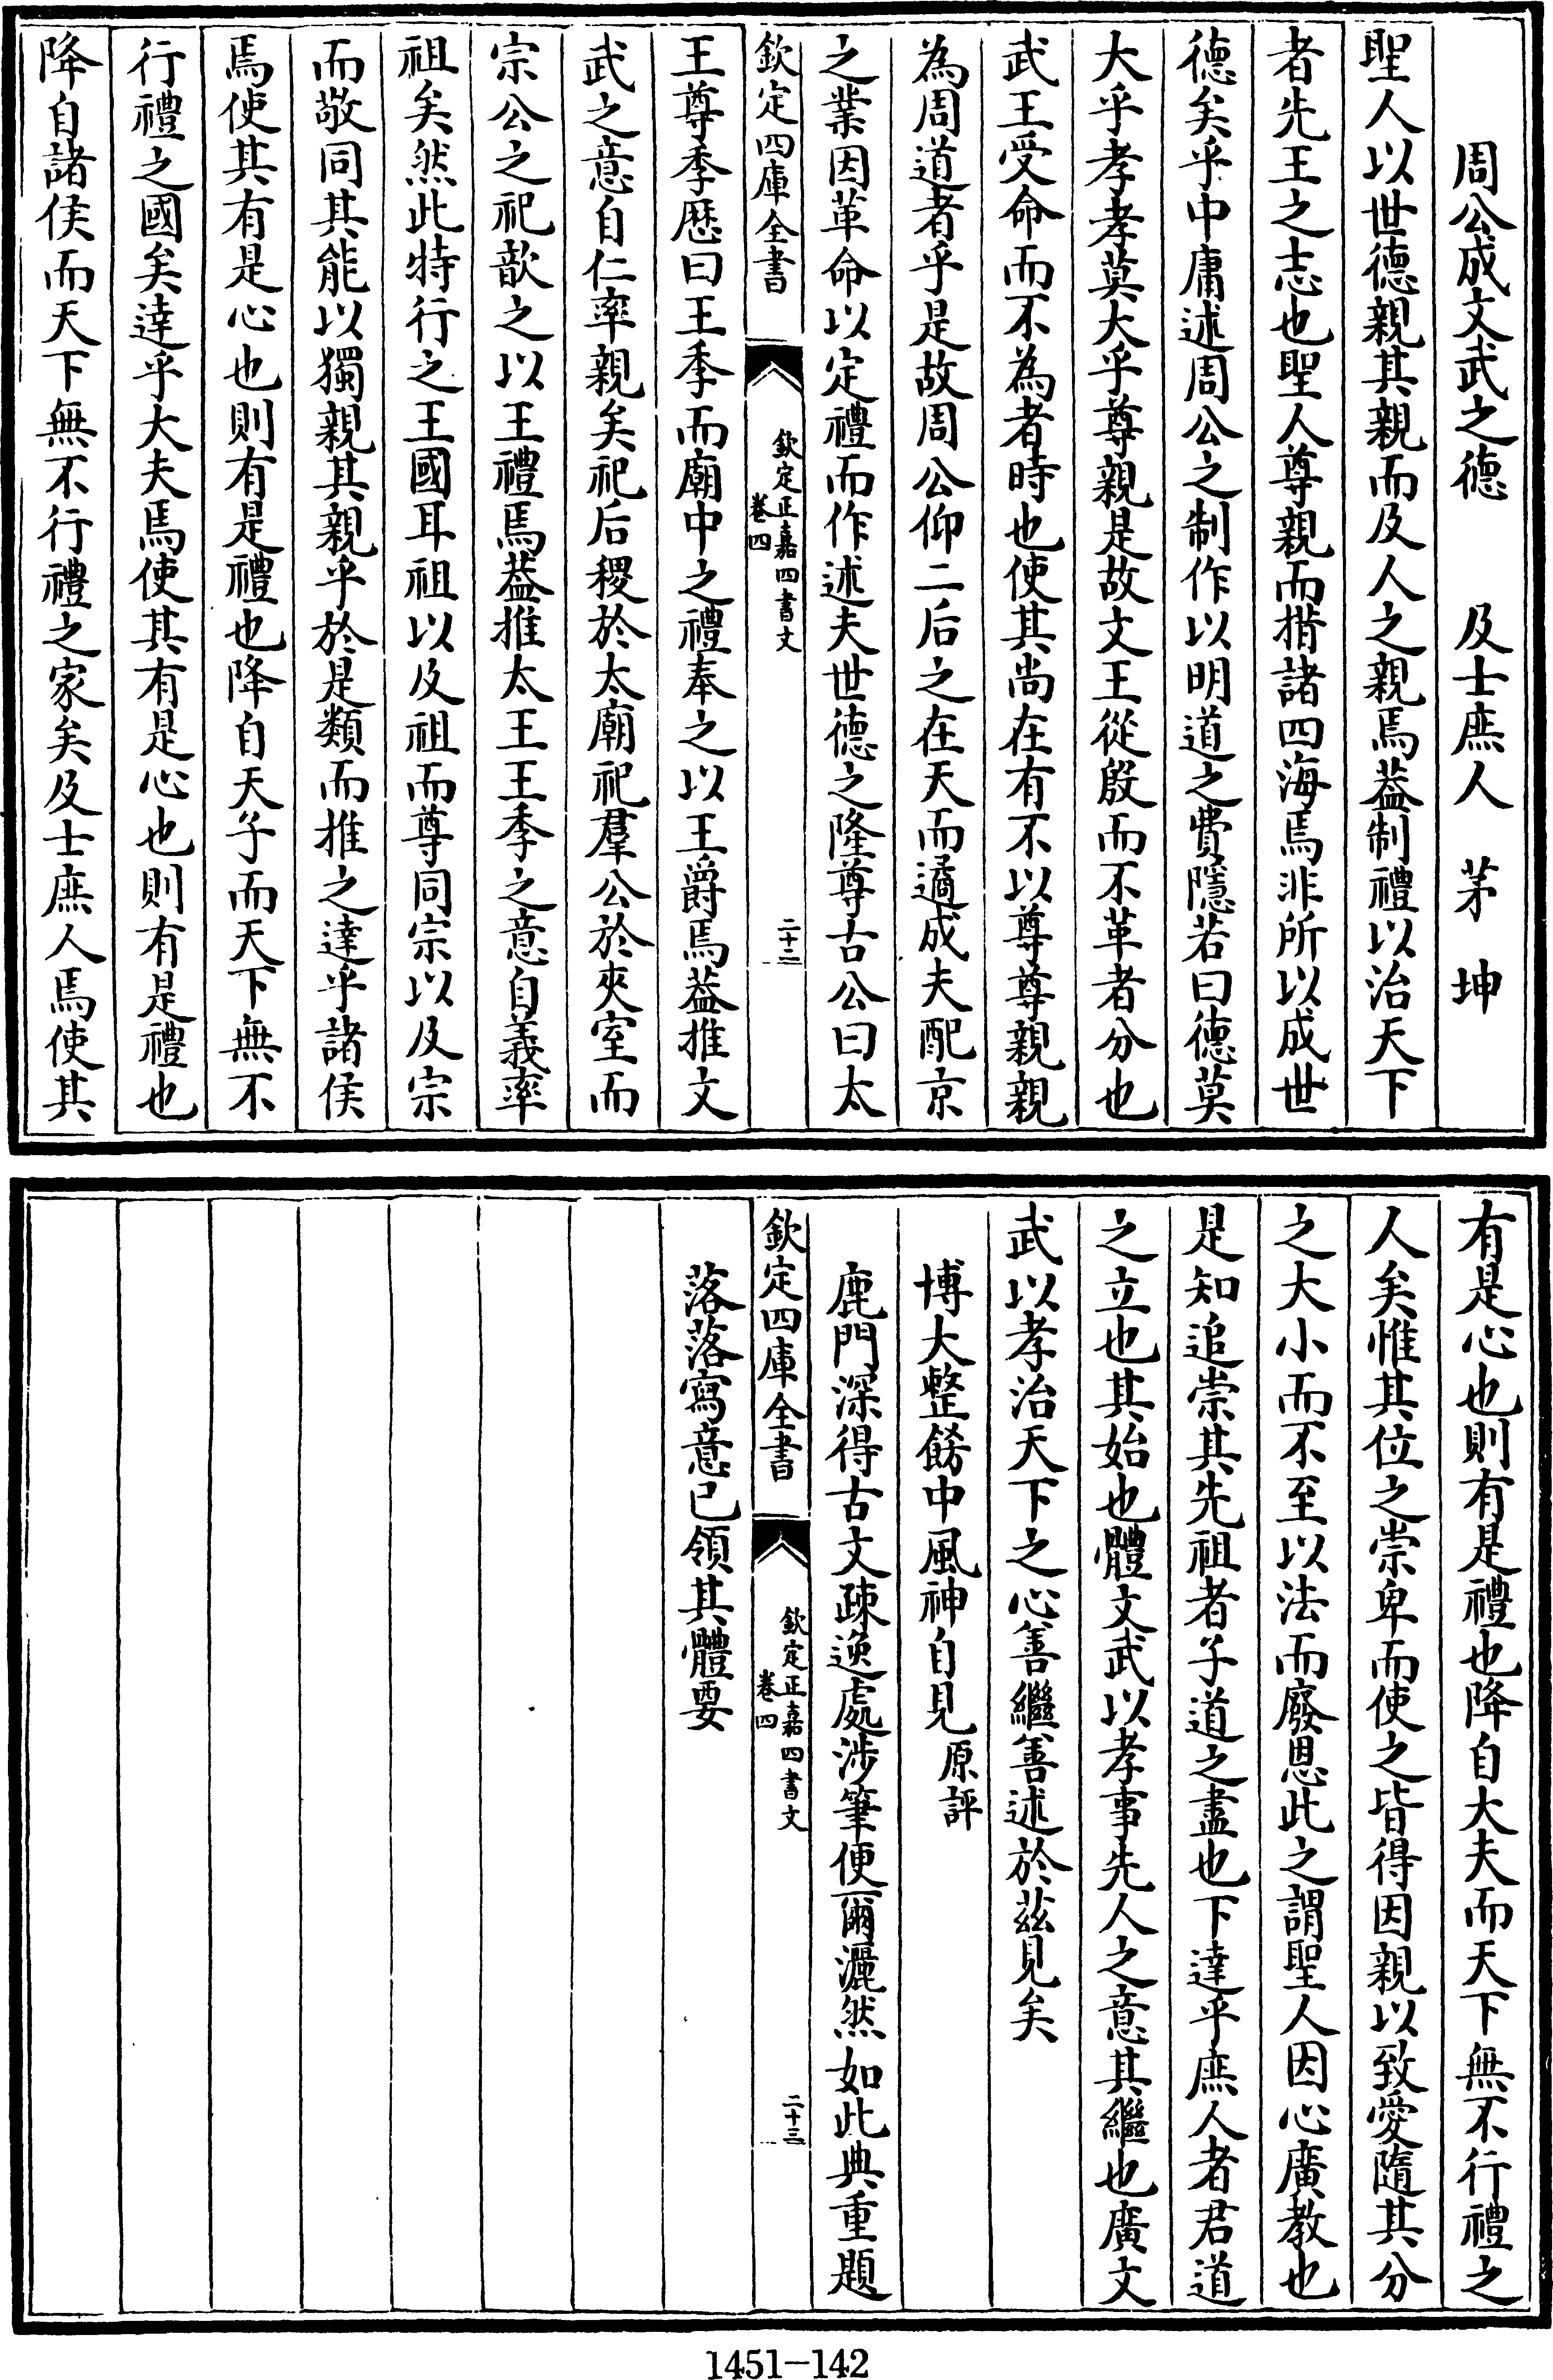 周公成文武之德　　及士庶人　茅　坤
聖人以世德親其親而及人之親焉葢制禮以治天下
者先王之志也聖人尊親而揩諸四海焉非所以成世
德矣乎中庸述周公之制作以明道之費隱若曰德莫
大乎孝孝莫大乎尊親是故文王從殷而不革者分也
武王受命而不為者時也使其尚在有不以尊尊親親
為周道者乎是故周公仰二后之在天而遹成夫配京
之業因革命以定禮而作述夫世德之隆尊古公曰太
欽定四庫全書
欽定正嘉四書文
卷四
二十二
王尊季歴曰王季而廟中之禮奉之以王爵焉葢推文
武之意自仁率親矣祀后稷於太廟祀羣公於夾室而
宗公之祀歆之以王禮焉葢推太王王季之意自義率
祖矣然此特行之王國耳祖以及祖而尊同宗以及宗
而敬同其能以獨親其親乎於是類而推之達乎諸侯
焉使其有是心也則有是禮也降自天子而天下無不
行禮之國矣達乎大夫焉使其有是心也則有是禮也
降自諸侯而天下無不行禮之家矣及士庶人焉使其
有是心也則有是禮也降自大夫而天下無不行禮之
人矣惟其位之崇卑而使之皆得因親以致愛隨其分
之大小而不至以法而廢恩此之謂聖人因心廣教也
是知追崇其先祖者子道之盡也下達乎庶人者君道
之立也其始也體文武以孝事先人之意其繼也廣文
武以孝治天下之心善繼善述於茲見矣
博大整餝中風神自見原評
鹿門深得古文疎逸處涉筆便爾灑然如此典重題
欽定四庫全書
欽定正嘉四書文
卷四
二十三
落落寫意已領其體要
1451-142